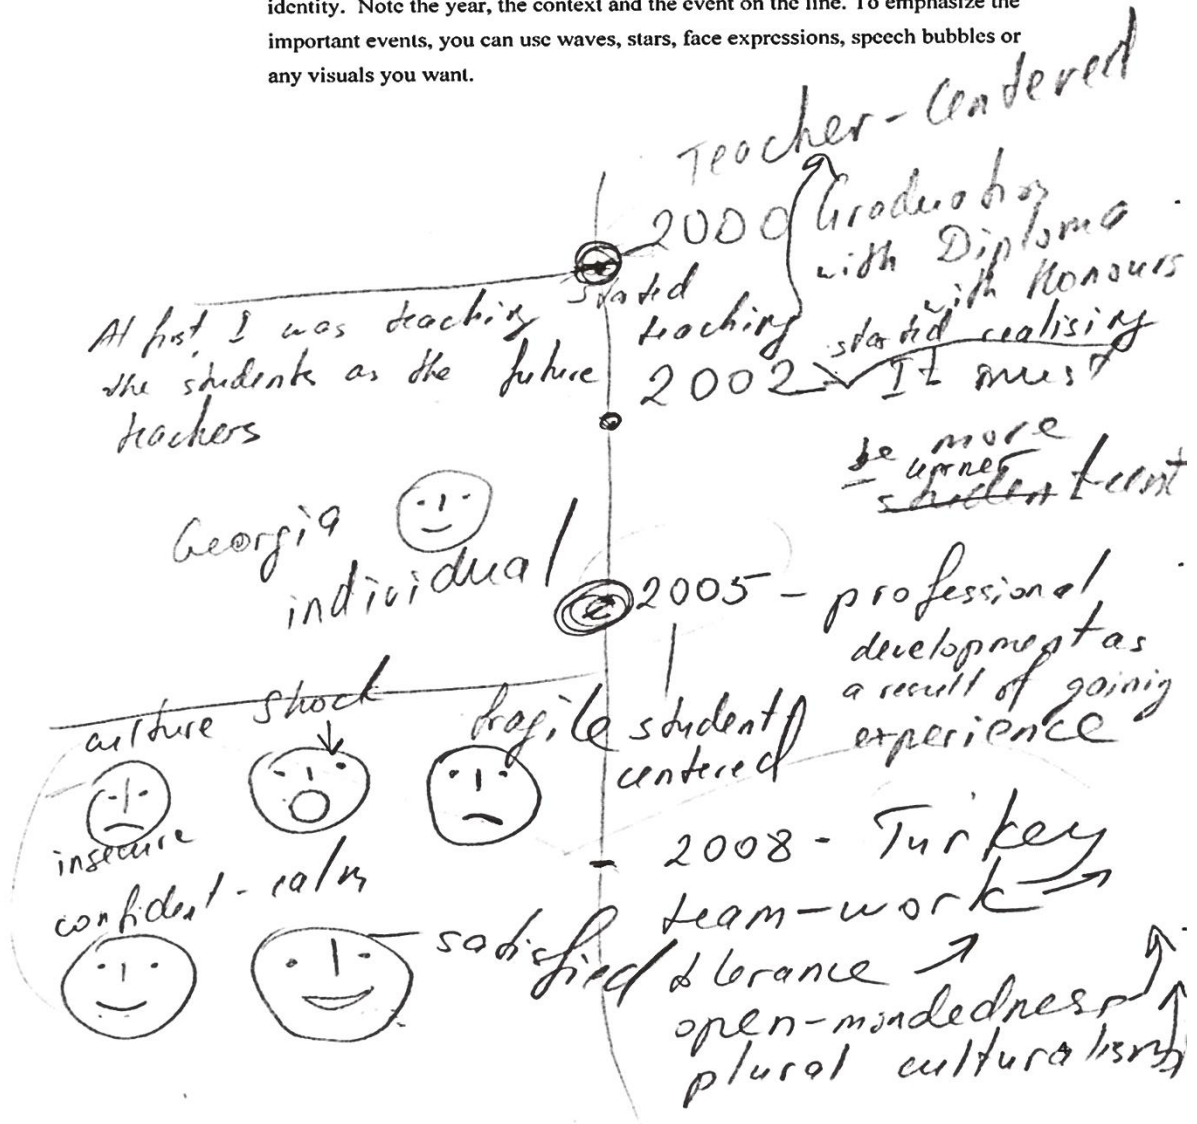 identity. Note the year, the context and the event on the line. To emphasize the
important events, you can use waves, stars, face expressions, speech bubbles or
any visuals you want.
Teacher-Centered
2000 Graduation
with Diploma
with Honours
started
teaching
At first, I was teaching
the students as the future
teachers
2002 started realising
It must
be more
learner
student-cent
Georgia
individual
2005 - professional
development as
a result of gainig
experience
student
centered
culture shock
fragile
insecure
confident - calm
satisfied
2008 - Turkey
team-work
tolerance
open-mondedness
plural culturalism